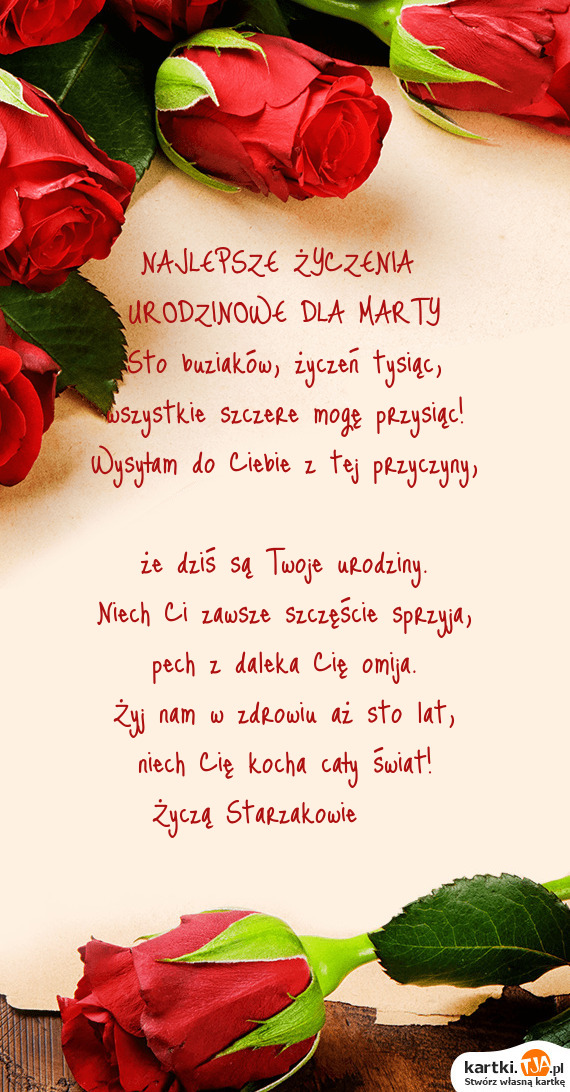 NAJLEPSZE ŻYCZENIA
URODZINOWE DLA MARTY
Sto buziaków, życzeń tysiąc,
wszystkie szczere mogę przysiąc!
Wysyłam do Ciebie z tej przyczyny,
że dziś są Twoje urodziny.
Niech Ci zawsze szczęście sprzyja,
pech z daleka Cię omija.
Żyj nam w zdrowiu aż sto lat,
niech Cię kocha cały świat!
Życzą Starzakowie
kartki.TJA.pl
Stwórz własną kartkę